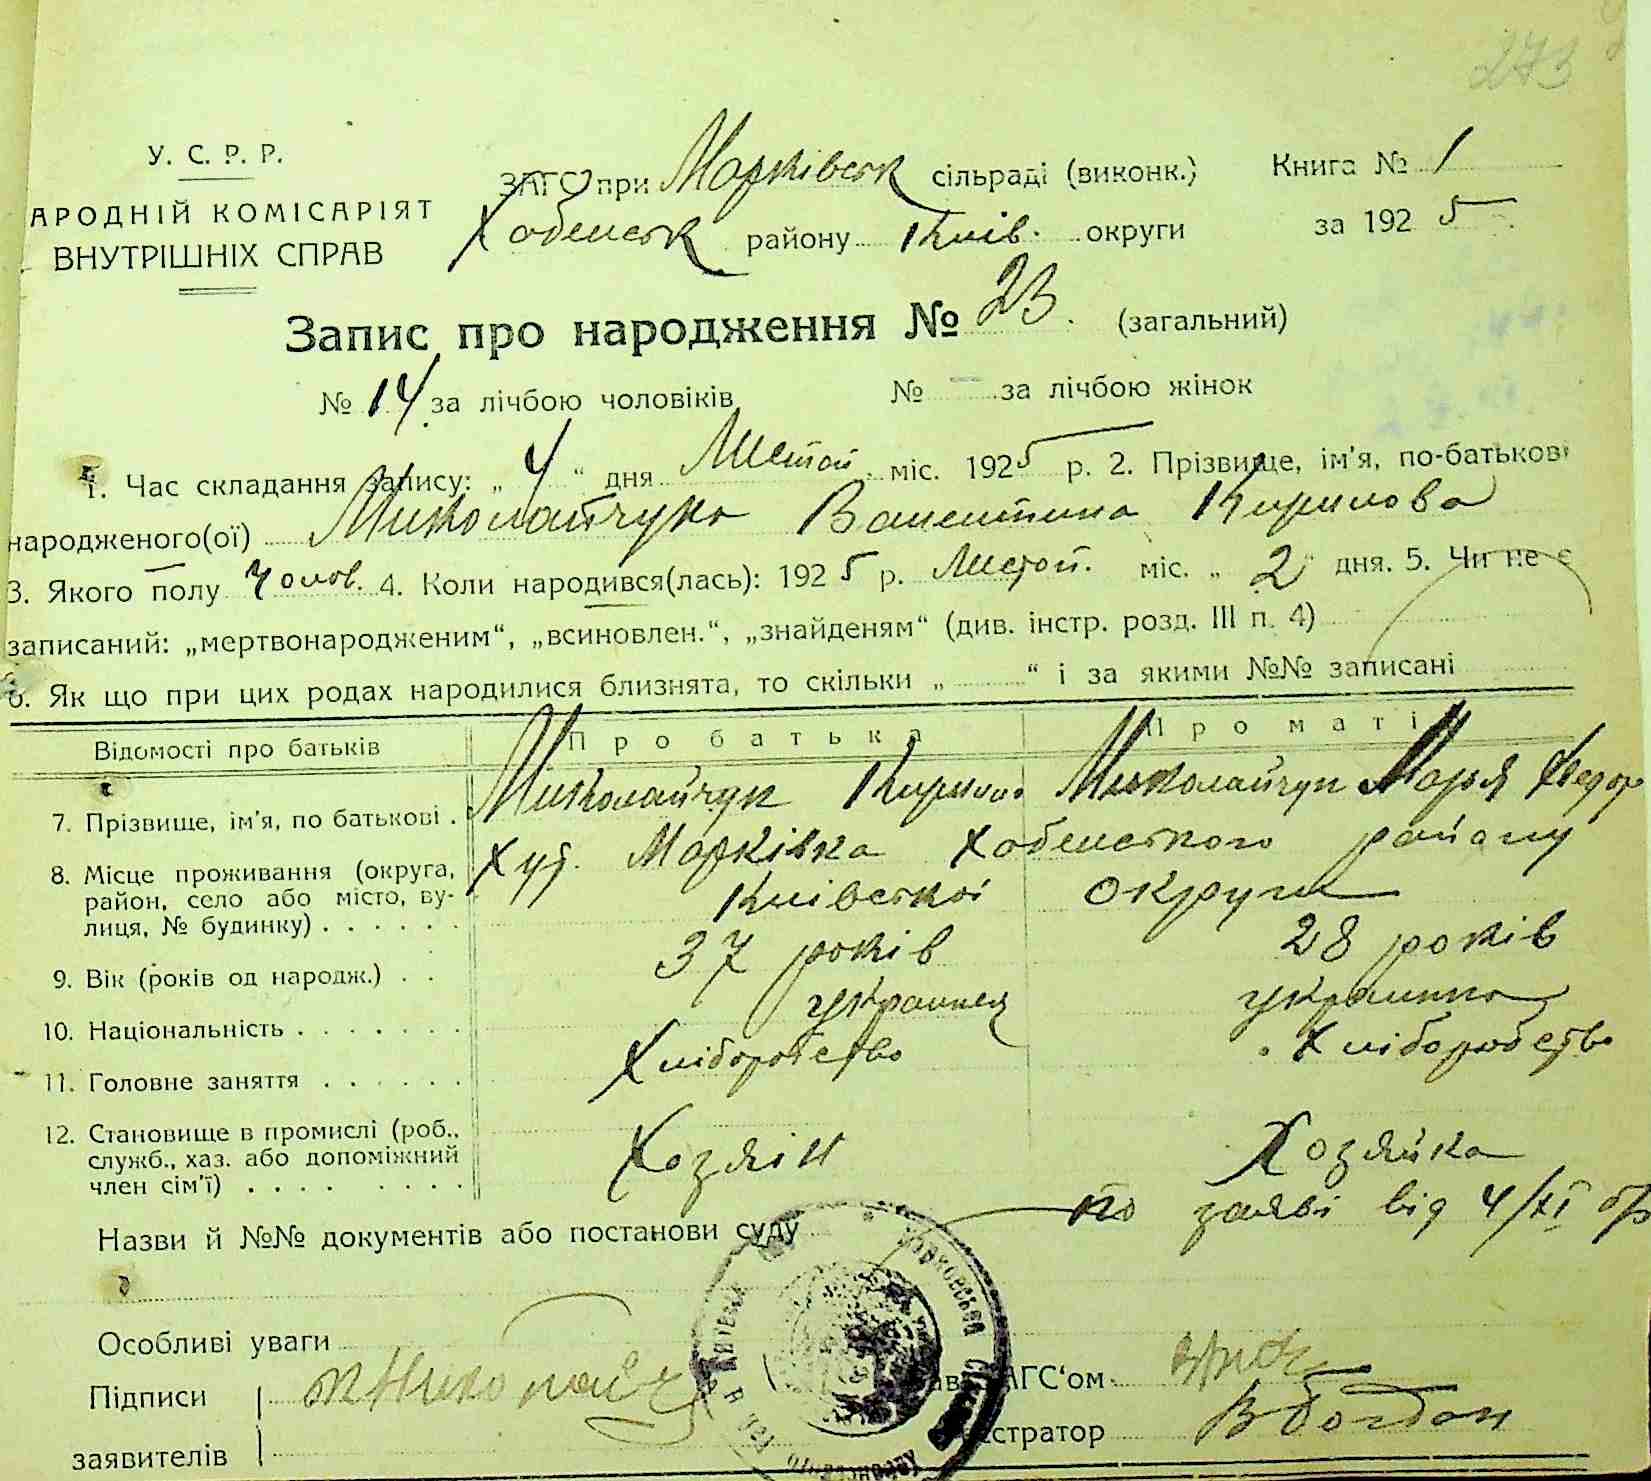 273
У. С. Р. Р.
АРОДНІЙ КОМІСАРІЯТ
ВНУТРІШНІХ СПРАВ
ЗАГС при Марківськ сільраді (виконк.) Книга № 1
Хабенськ району Київ. округи за 1925
Запис про народження № 23. (загальний)
№ 14 за лічбою чоловіків № — за лічбою жінок
1. Час складання запису: „ 4 “ дня Листоп. міс. 1925 р. 2. Прізвище, ім'я, по-батькові
народженого(ої) Миколайчука Валентина Кирилова
3. Якого полу Чолов. 4. Коли народився(лась): 1925 р. Листоп. міс. „ 2 “ дня. 5. Чи не є
записаний: „мертвонародженим“, „всиновлен.“, „знайденям“ (див. інстр. розд. III п. 4)
6. Як що при цих родах народилися близнята, то скільки „ “ і за якими №№ записані
Відомості про батьків Про батька Про матір
7. Прізвище, ім'я, по батькові . Миколайчук Кирило Миколайчук Марія Федор
8. Місце проживання (округа, Хут. Марківка Хабенського району
район, село або місто, ву- Київської округи
лиця, № будинку) . . . . . .
9. Вік (років од народж.) . . 37 років 28 років
10. Національність . . . . . . . украинец украинка
11. Головне заняття . . . . . . Хліборобство Хліборобство
12. Становище в промислі (роб.,
служб., хаз. або допоміжний Хозяін Хозяйка
член сім'ї) . . . . . . . . .
Назви й №№ документів або постанови суду по заяві від 4/XI
Особливі уваги
Підписи Николайч АГС'ом
заявителів стратор В Богдан